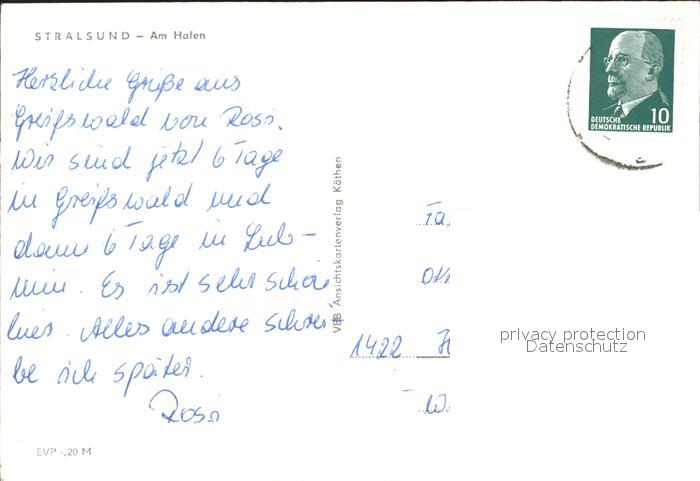 STRALSUND – Am Hafen
Herzliche Grüße aus
Greifswald von Rosi.
Wir sind jetzt 6 Tage
in Greifswald und
dann 6 Tage in Lub-
min. Es ist sehr schön
hier. Alles andere schrei
be ich später.
Rosi
EVP -,20 M
VEB Ansichtskartenverlag Köthen
DEUTSCHE
DEMOKRATISCHE REPUBLIK
10
1422 H
privacy protection
Datenschutz